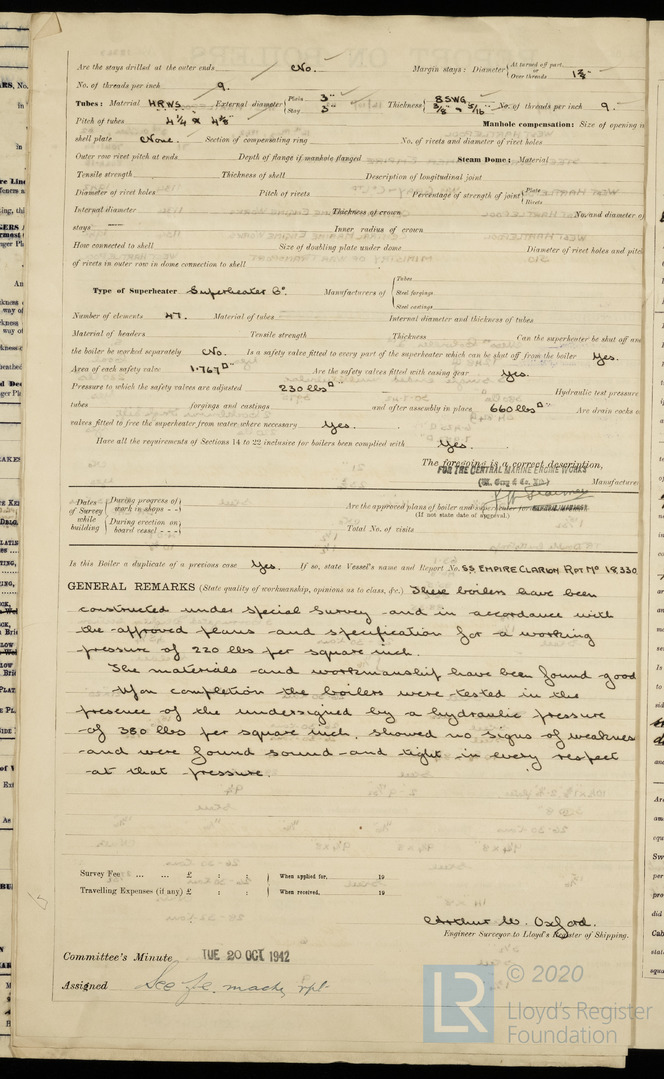 Are the stays drilled at the outer ends No. Margin stays: Diameter { At turned off part, or Over threads 1 7/8"
No. of threads per inch 9.
Tubes: Material H.R.W.S. External diameter { Plain 3" Stay 3" Thickness { 8 SWG 3/8" & 5/16" No. of threads per inch 9.
Pitch of tubes 4 1/4 x 4 1/8" Manhole compensation: Size of opening in
shell plate None. Section of compensating ring No. of rivets and diameter of rivet holes
Outer row rivet pitch at ends Depth of flange if manhole flanged Steam Dome: Material
Tensile strength Thickness of shell Description of longitudinal joint
Diameter of rivet holes Pitch of rivets Percentage of strength of joint { Plate Rivets
Internal diameter Thickness of crown No. and diameter of
stays Inner radius of crown
How connected to shell Size of doubling plate under dome Diameter of rivet holes and pitch
of rivets in outer row in dome connection to shell
Type of Superheater Superheater Co. Manufacturers of { Tubes Steel forgings Steel castings
Number of elements 47. Material of tubes Internal diameter and thickness of tubes
Material of headers Tensile strength Thickness Can the superheater be shut off and
the boiler be worked separately No. Is a safety valve fitted to every part of the superheater which can be shut off from the boiler Yes.
Area of each safety valve 1.767 □" Are the safety valves fitted with easing gear Yes.
Pressure to which the safety valves are adjusted 230 lbs □" Hydraulic test pressure
tubes forgings and castings and after assembly in place 660 lbs □" Are drain cocks or
valves fitted to free the superheater from water where necessary Yes.
Have all the requirements of Sections 14 to 22 inclusive for boilers been complied with Yes.
The foregoing is a correct description,
FOR THE CENTRAL MARINE ENGINE WORKS
(W. Gray & Co. Ld.) Manufacturer
Dates of Survey while building { During progress of work in shops - - During erection on board vessel - - -
Are the approved plans of boiler and superheater for GENERAL MANAGER
(If not state date of approval.)
Total No. of visits
Is this Boiler a duplicate of a previous case Yes. If so, state Vessel's name and Report No. SS EMPIRE CLARION RPT No 18330
GENERAL REMARKS (State quality of workmanship, opinions as to class, &c.) These boilers have been
constructed under special survey and in accordance with
the approved plans and specification for a working
pressure of 220 lbs per square inch.
The materials and workmanship have been found good
Upon completion the boilers were tested in the
presence of the undersigned by a hydraulic pressure
of 380 lbs per square inch, showed no signs of weakness
and were found sound and tight in every respect
at that pressure.
Survey Fee ... ... £ : : When applied for, 19
Travelling Expenses (if any) £ : : When received, 19
Arthur W. Oxford.
Engineer Surveyor to Lloyd's Register of Shipping.
Committee's Minute TUE 20 OCT 1942
Assigned See F.E. mach. rpt.
© 2020
LR
Lloyd's Register
Foundation